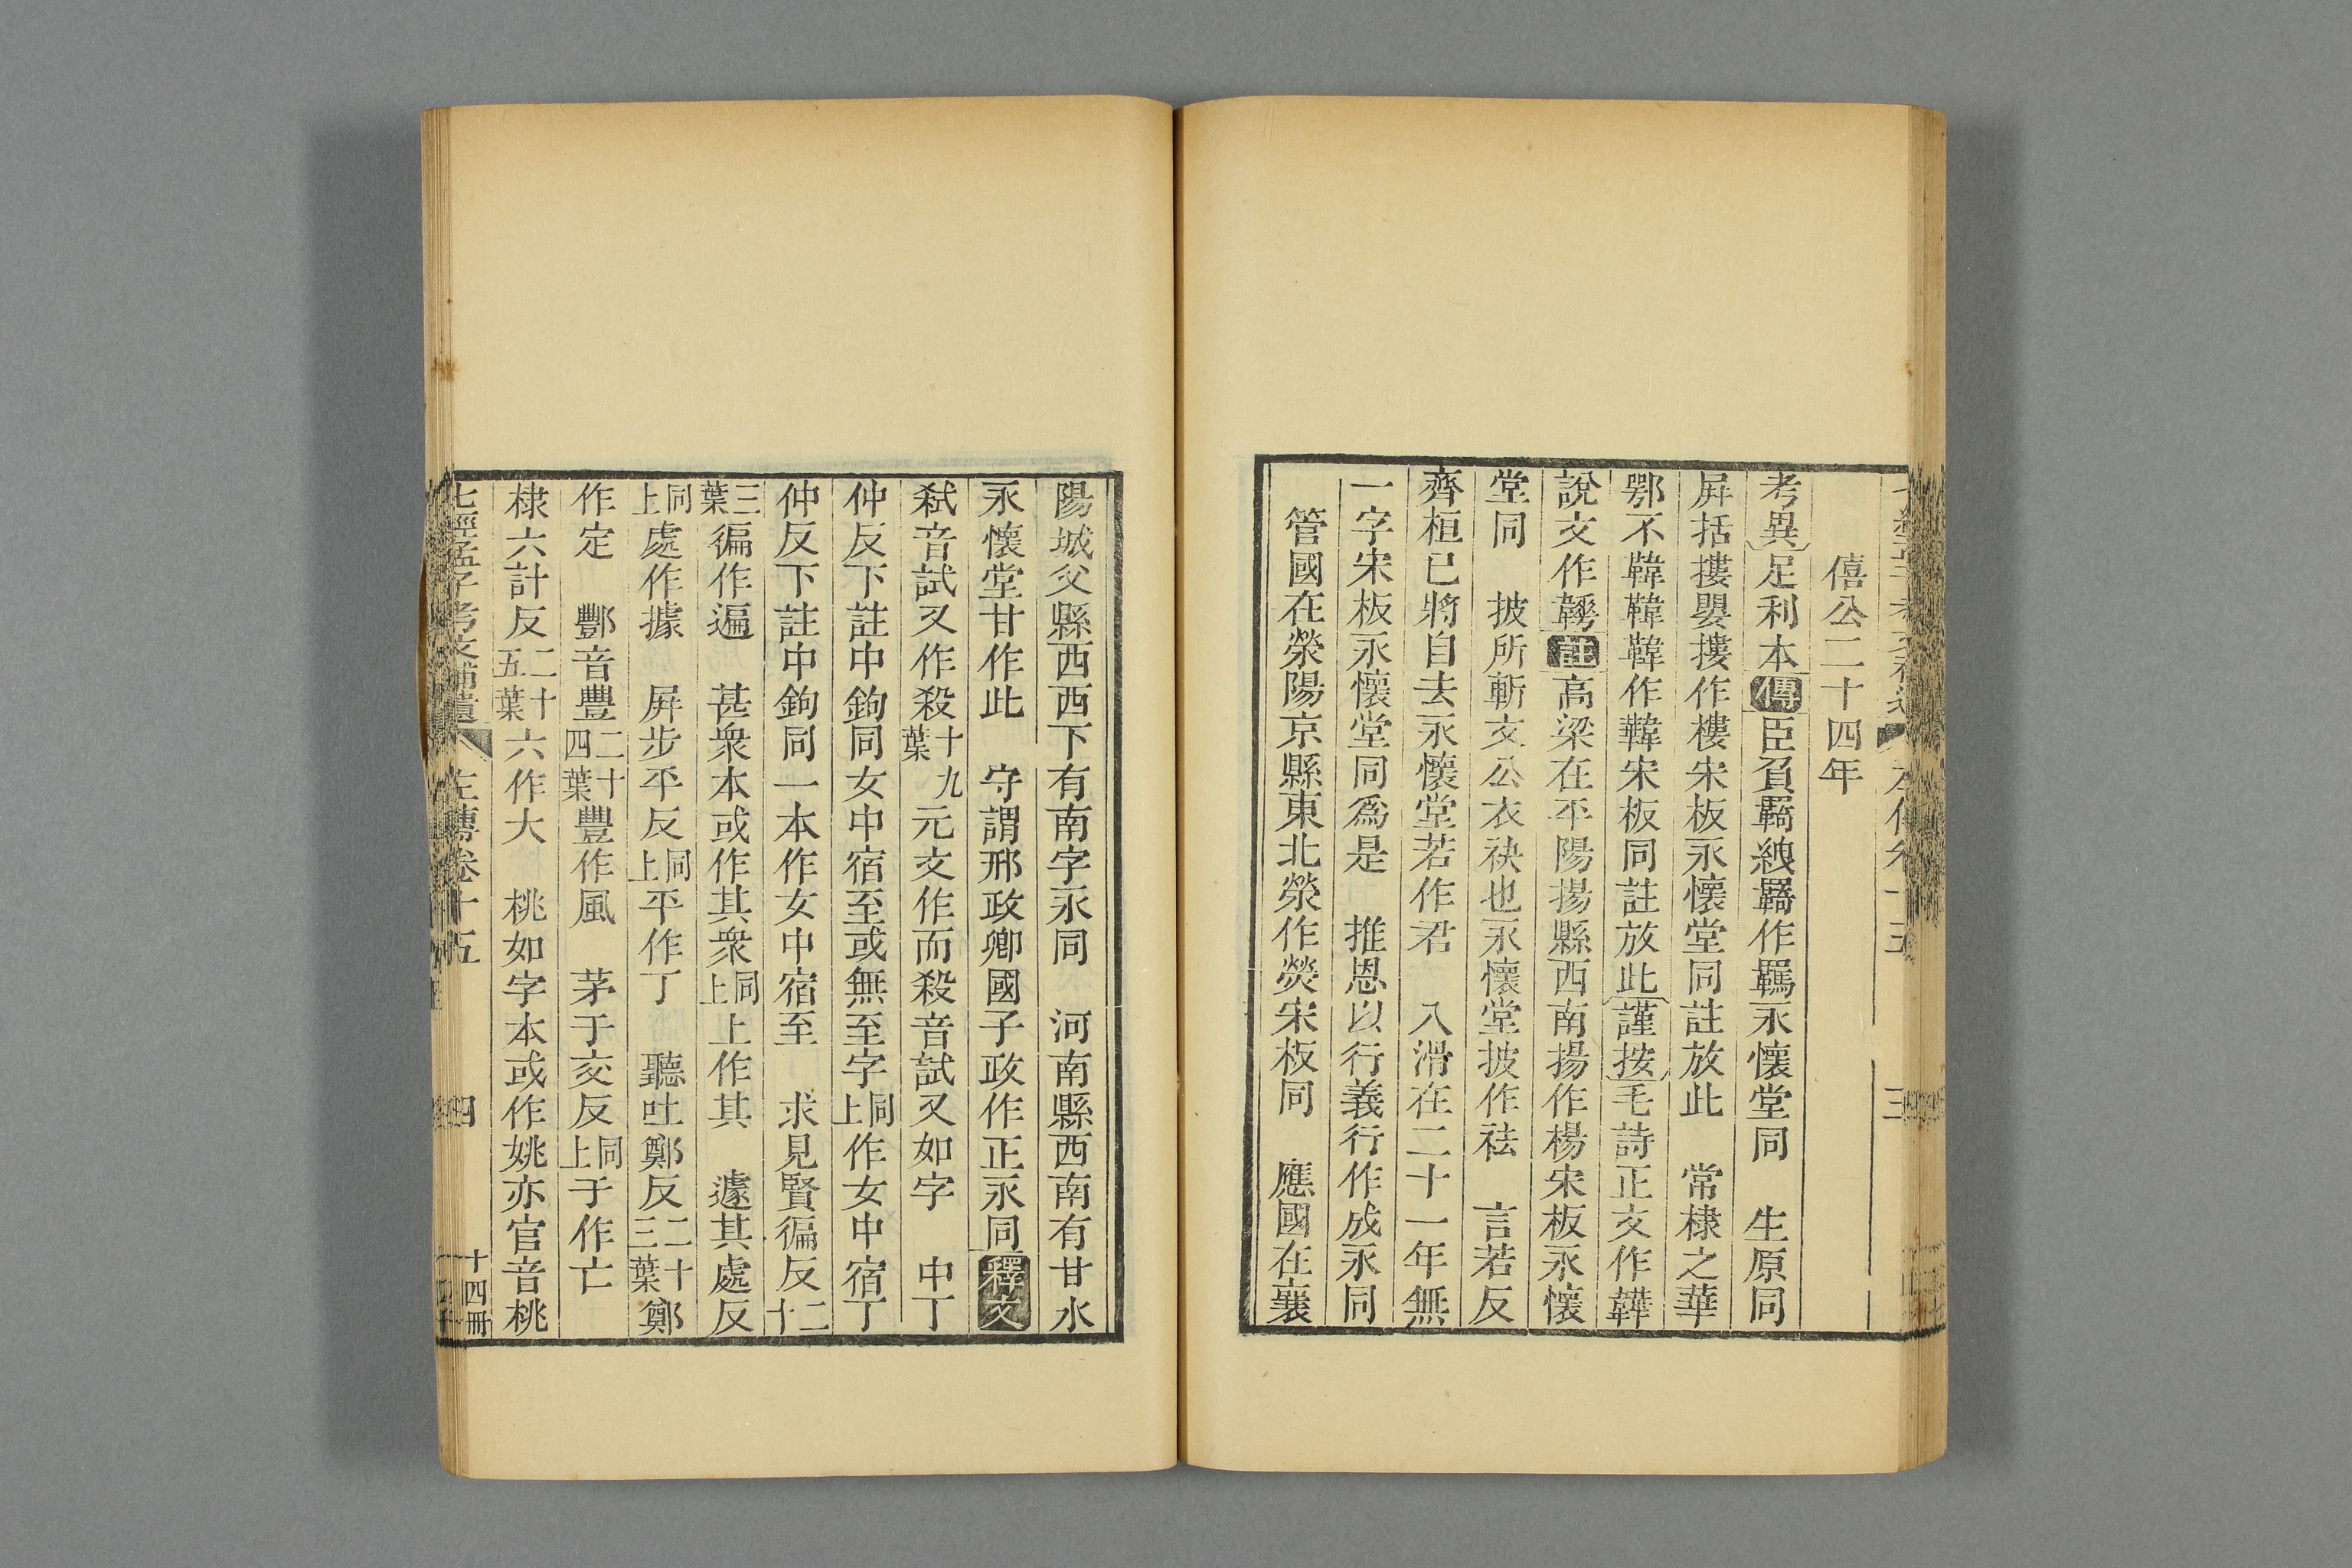 僖公二十四年
考異足利本傳臣負羈紲羈作羇永懷堂同　生原同
屏括摟嬰摟作樓宋板永懷堂同註放此　常棣之華
鄂不韡韡韡作韡宋板同註放此謹按毛詩正文作韡
說文作註高梁在平陽揚縣西南揚作楊宋板永懷
堂同　披所斬文公衣袂也永懷堂披作祛　言若反
齊桓已將自去永懷堂若作君　入滑在二十一年無
一字宋板永懷堂同爲是　推恩以行義行作成永同
管國在滎陽京縣東北滎作熒宋板同　應國在襄
陽城父縣西西下有南字永同　河南縣西南有甘水
永懷堂甘作此　守謂邢政卿國子政作正永同釋文
弒音試又作殺十九葉元文作而殺音試又如字　中丁
仲反下註中鉤同女中宿至或無至字同上作女中宿丁
仲反下註中鉤同一本作女中宿至　求見賢徧反二十
三葉徧作遍　甚衆本或作其衆同上上作其　遽其處反
同上處作據　屏步平反同上平作丁　聽吐鄭反二十三葉鄭
作定　酆音豐二十四葉豐作風　茅于交反同上于作亡
棣六計反二十五葉六作大　桃如字本或作姚亦官音桃
七經孟子考文補遺　左傳卷十五　四　十四冊